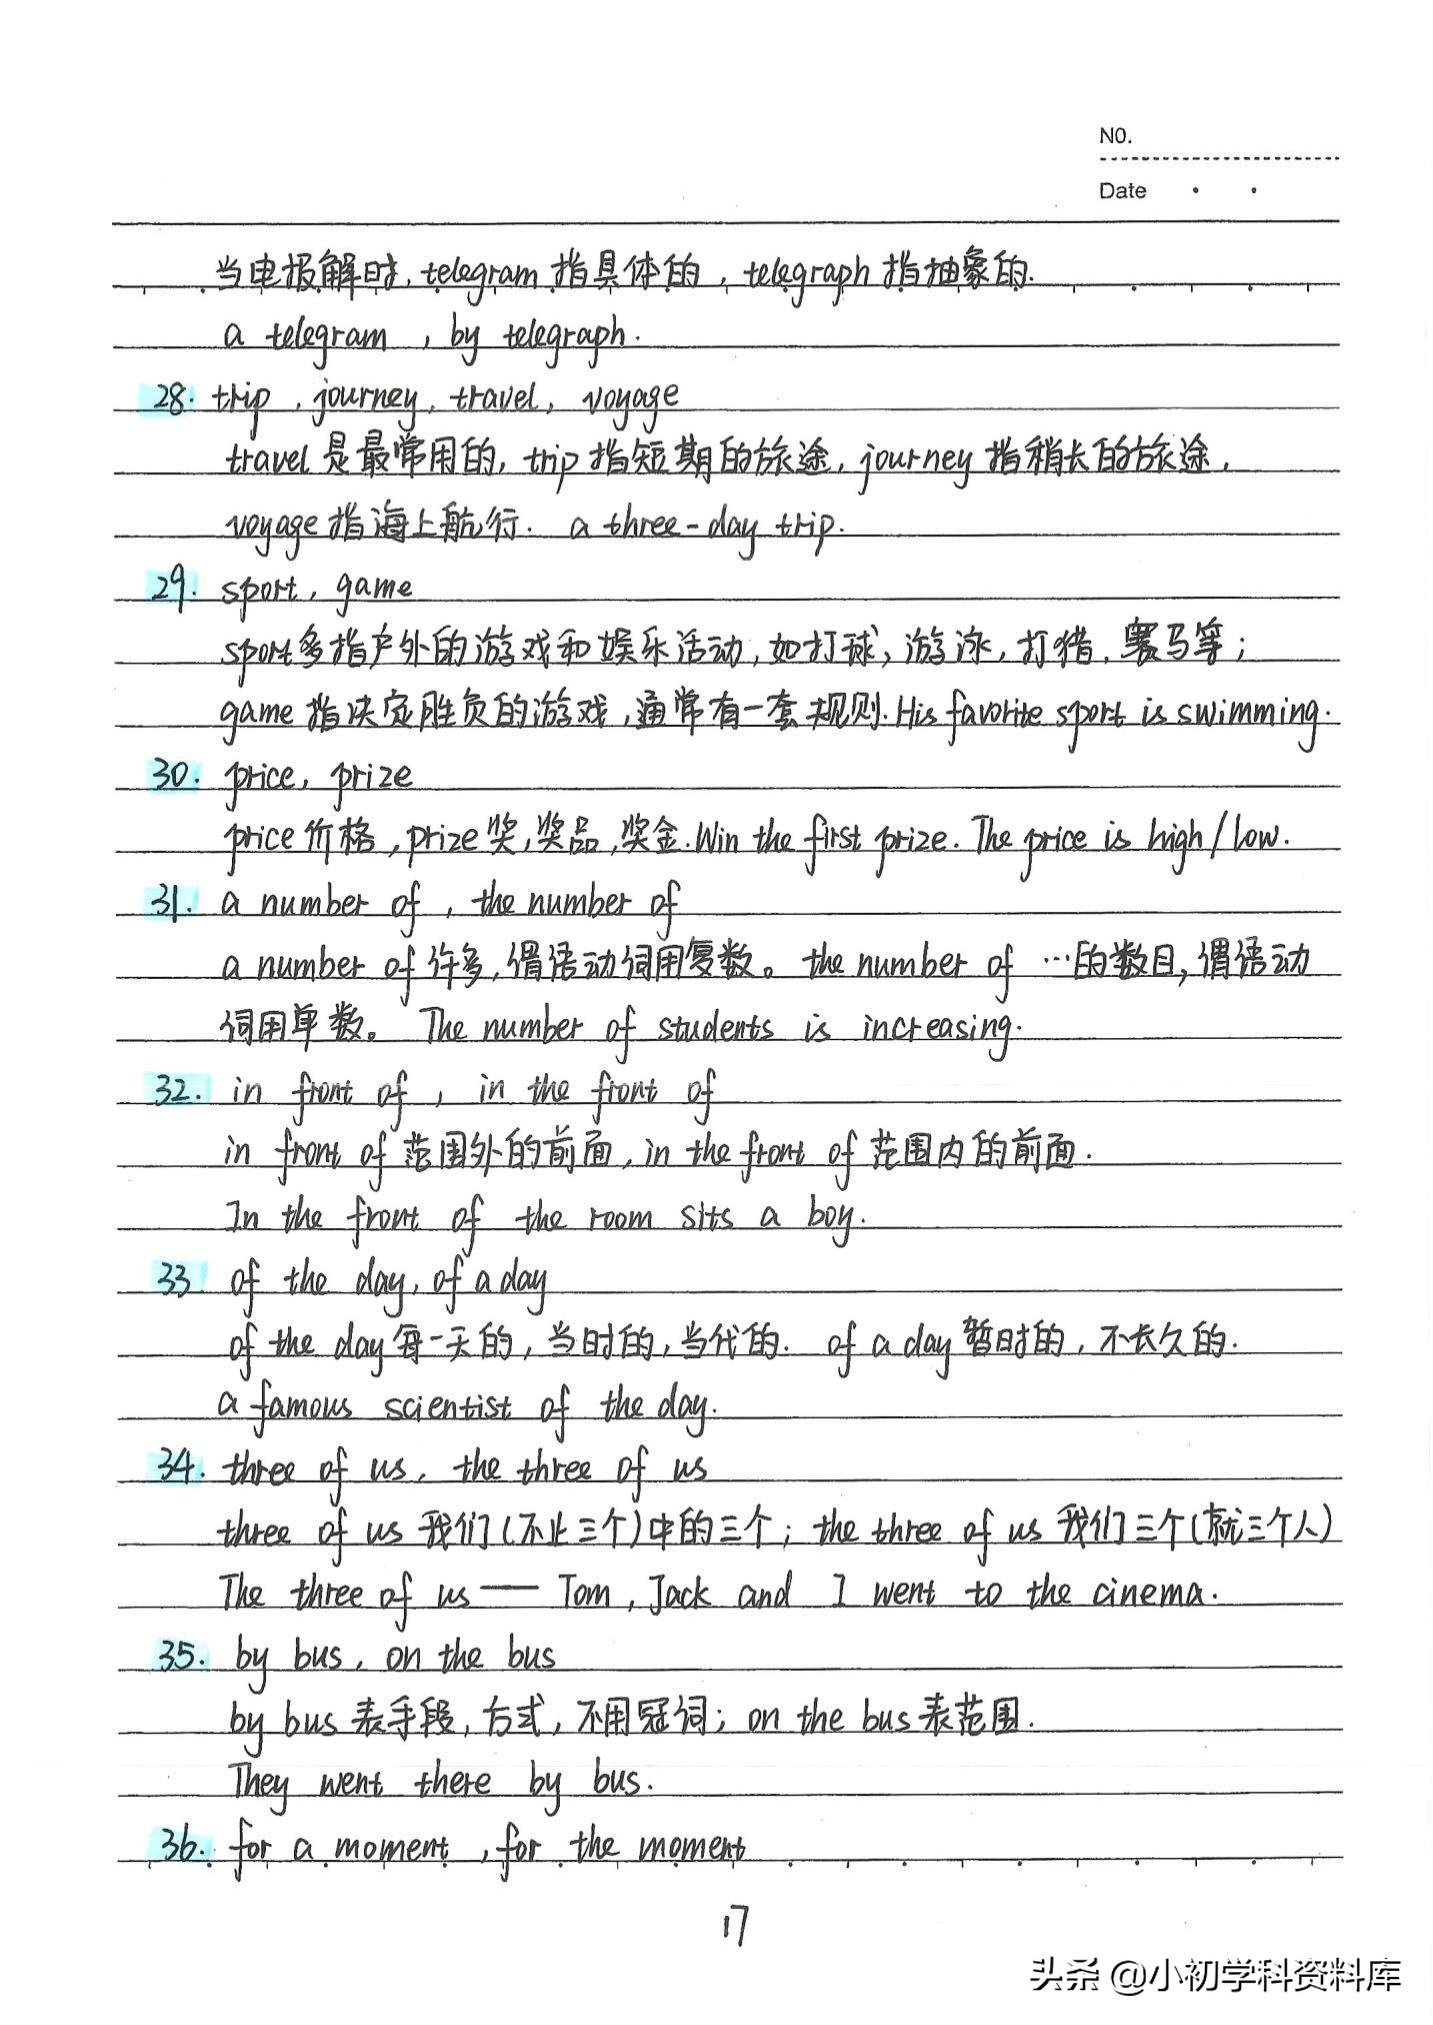 NO.
Date
当电报解时, telegram 指具体的, telegraph 指抽象的.
a telegram , by telegraph.
28. trip , journey, travel, voyage
travel 是最常用的, trip 指短期的旅途, journey 指稍长的旅途,
voyage 指海上航行. a three-day trip.
29. sport, game
sport多指户外的游戏和娱乐活动, 如打球, 游泳, 打猎, 赛马等;
game 指决定胜负的游戏, 通常有一套规则. His favorite sport is swimming.
30. price, prize
price 价格, prize 奖, 奖品, 奖金. Win the first prize. The price is high / low.
31. a number of , the number of
a number of 许多, 谓语动词用复数。 the number of …的数目, 谓语动
词用单数。 The number of students is increasing.
32. in front of , in the front of
in front of 范围外的前面, in the front of 范围内的前面.
In the front of the room sits a boy.
33 of the day, of a day
of the day 每一天的, 当时的, 当代的. of a day 暂时的, 不长久的.
a famous scientist of the day.
34. three of us, the three of us
three of us 我们(不止三个)中的三个; the three of us 我们三个(就三个人)
The three of us — Tom, Jack and I went to the cinema.
35. by bus, on the bus
by bus 表手段, 方式, 不用冠词; on the bus 表范围.
They went there by bus.
36. for a moment, for the moment
17
头条 @小初学科资料库